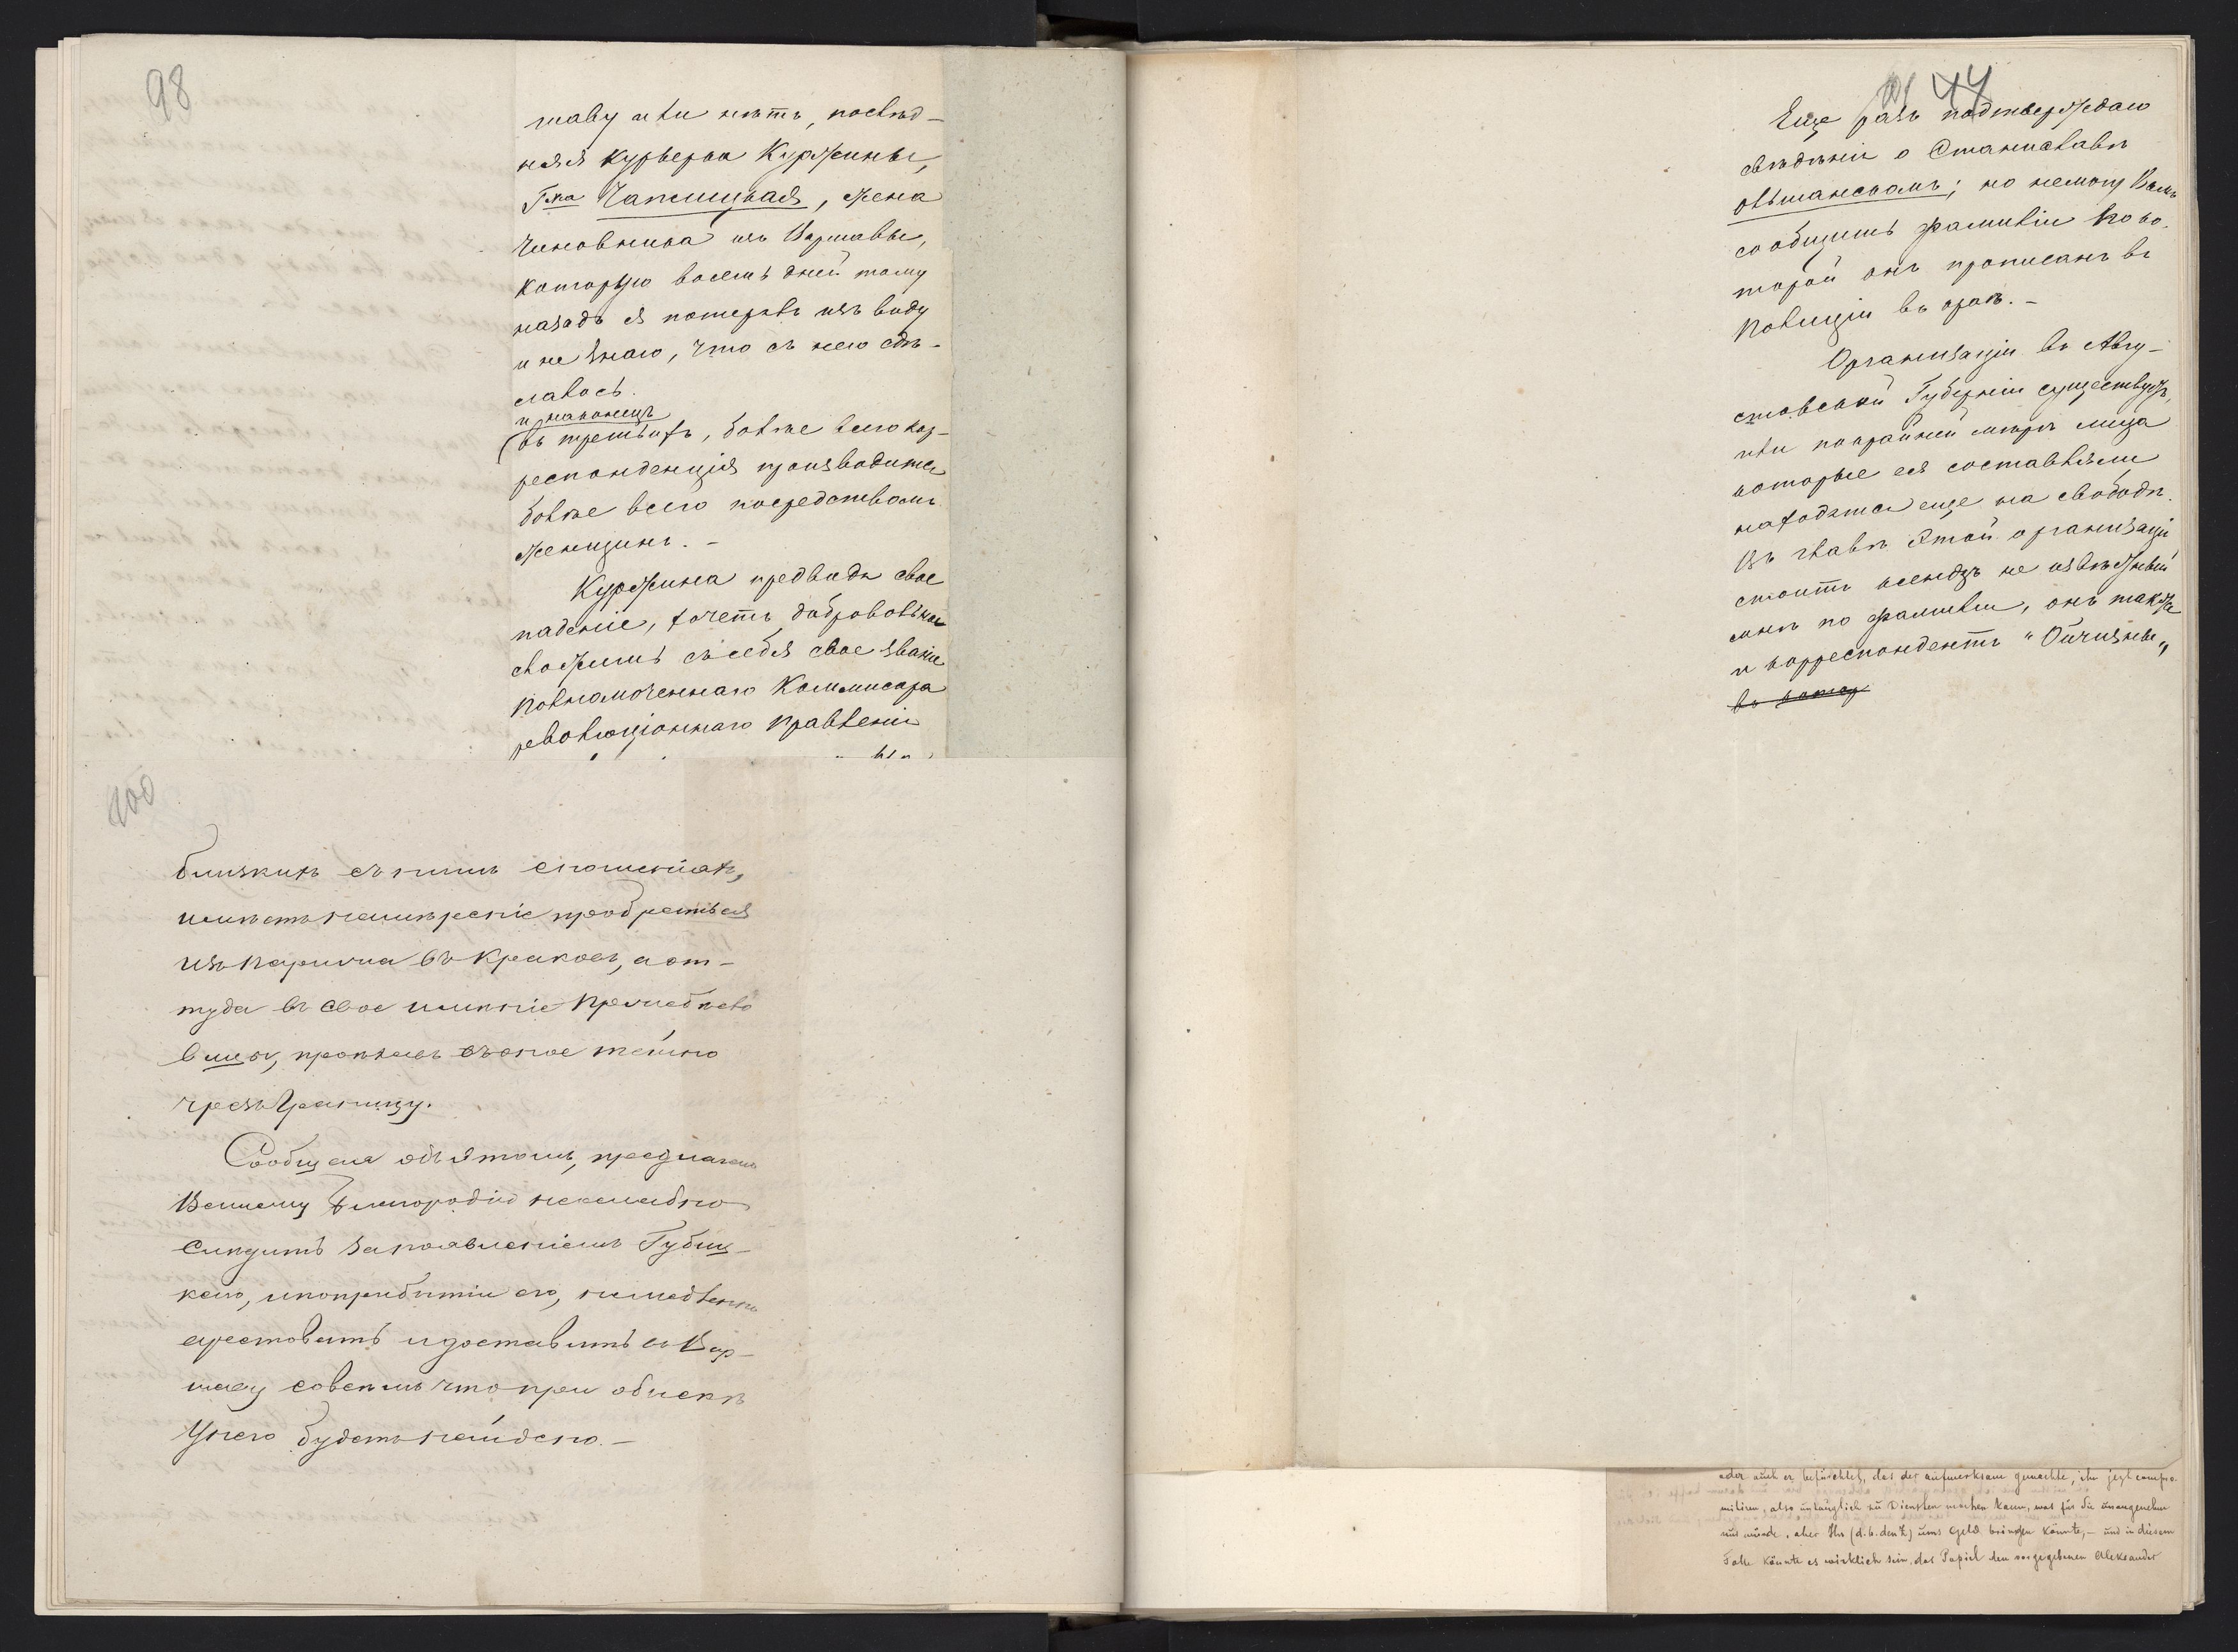 98
шаву или нѣтъ, послѣд-
няя курьерка Куржины,
Г-жа Чаплицкая, жена
Чиновника изъ Варшавы,
которую восемь дней тому
назадъ я потерялъ изъ виду
и не знаю, что съ нею сдѣ-
лалось.
и наконецъ
въ третьихъ, болѣе всего кор-
респонденція производится
болѣе всего посредствомъ
женщинъ. -
Куржина предвидя свое
паденіе, хочетъ добровольно
сложить съ себя свое званіе
Полномоченнаго Коммисара
революціоннаго правленія
100
близкихъ съ нимъ сношеніяхъ,
имѣетъ намѣреніе пробраться
изъ Парижа въ Краковъ, а от-
туда въ свое имѣніе
проѣхавъ въ оное тайно
чрезъ границу.
Сообщая объ этомъ, предлагаю
Вашему Благородію неослабно
слѣдить за появленіемъ Губиц-
каго, и по прибытіи его, немедленно
арестовать и доставить въ Вар-
шаву со всѣмъ что при обыскѣ
у него будетъ найдено. -
44
Еще разъ подтверждаю
свѣдѣніе о Станиславѣ
Ольшанскомъ; но не могу Вамъ
сообщить фамиліи по ко-
торой онъ прописанъ въ
Полиціи въ
Организація въ Авгу-
стовской Губерніи существуетъ,
или по крайней мѣрѣ лица
которые ея составляли
находятся еще на свободѣ.
Въ главѣ этой организаціи
стоитъ ксендзъ не извѣстный
мнѣ по фамиліи, онъ также
и корреспондентъ "Ойчизны"
oder auch er befürchtet, das der aufmerksam gemachte, ihn jezt compro-
mitiren, also untauglich zu Diensten machen kann, was für Sie unangenehm
uns würde, aber Ihn (d.h. den Z) ums Geld bringen könnte, - und in diesem
Falle könnte es wirklich sein, das Papiel den vorgegebenen Aleksander